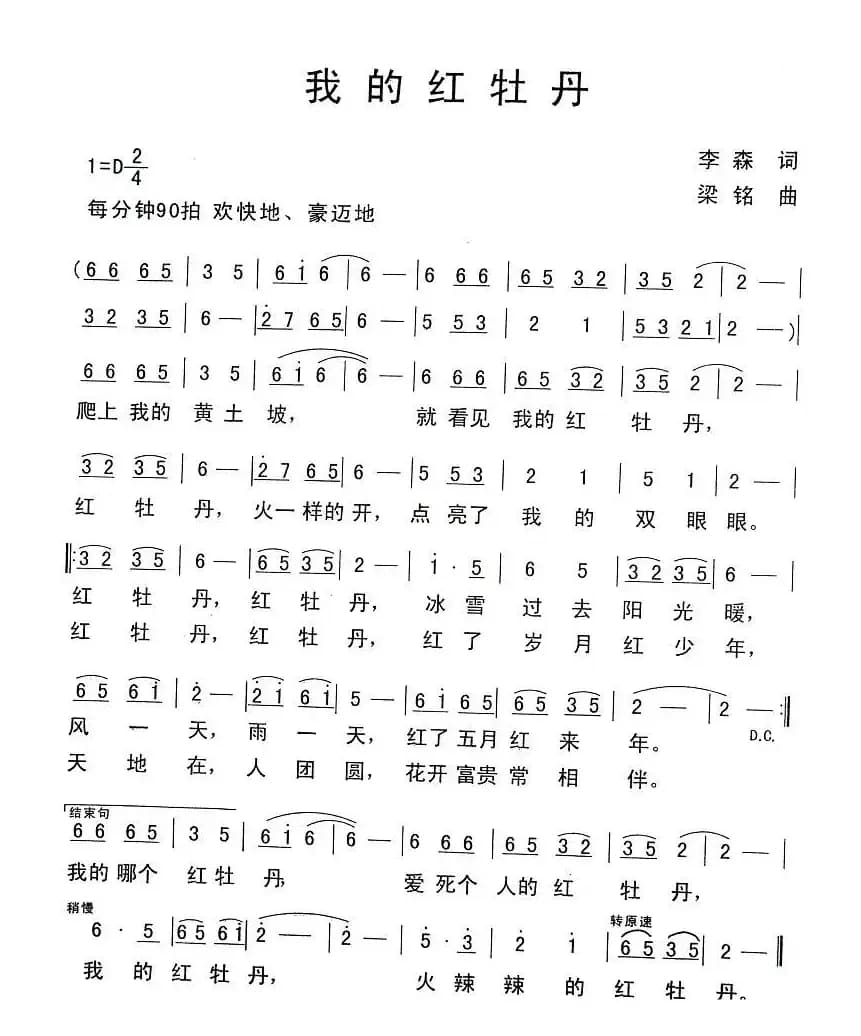 我的红牡丹
1=D 2/4
李森 词
每分钟90拍 欢快地、豪迈地
梁铭 曲
(66 65 | 3 5 | 6i6 | 6 — | 6 66 | 65 32 | 35 2 | 2 — |
32 35 | 6 — | 27 65 | 6 — | 5 53 | 2 1 | 5321 | 2 —)|
66 65 | 3 5 | 6i6 | 6 — | 6 66 | 65 32 | 35 2 | 2 — |
爬上 我的 黄土坡, 就看见 我的红 牡丹,
32 35 | 6 — | 27 65 | 6 — | 5 53 | 2 1 | 5 1 | 2 — |
红牡丹, 火一样的开, 点亮了我的双眼眼。
‖:32 35 | 6 — | 65 35 | 2 — | i·5 | 6 5 | 32 35 | 6 — |
红牡丹, 红牡丹, 冰雪过去阳光暖,
红牡丹, 红牡丹, 红了岁月红少年,
65 6i | 2 — | 2i 6i | 5 — | 6i 65 | 65 35 | 2 — | 2 — :‖
风一天, 雨一天, 红了五月红来年。 D.C.
天地在, 人团圆, 花开富贵常相伴。
结束句
66 65 | 3 5 | 6i6 | 6 — | 6 66 | 65 32 | 35 2 | 2 — |
我的哪个 红牡丹, 爱死个人的红牡丹,
稍慢 转原速
6·5 | 65 6i | 2 — | 2 — | 5·3 | 2 i | 65 35 | 2 — |
我的红牡丹, 火辣辣的红牡丹。